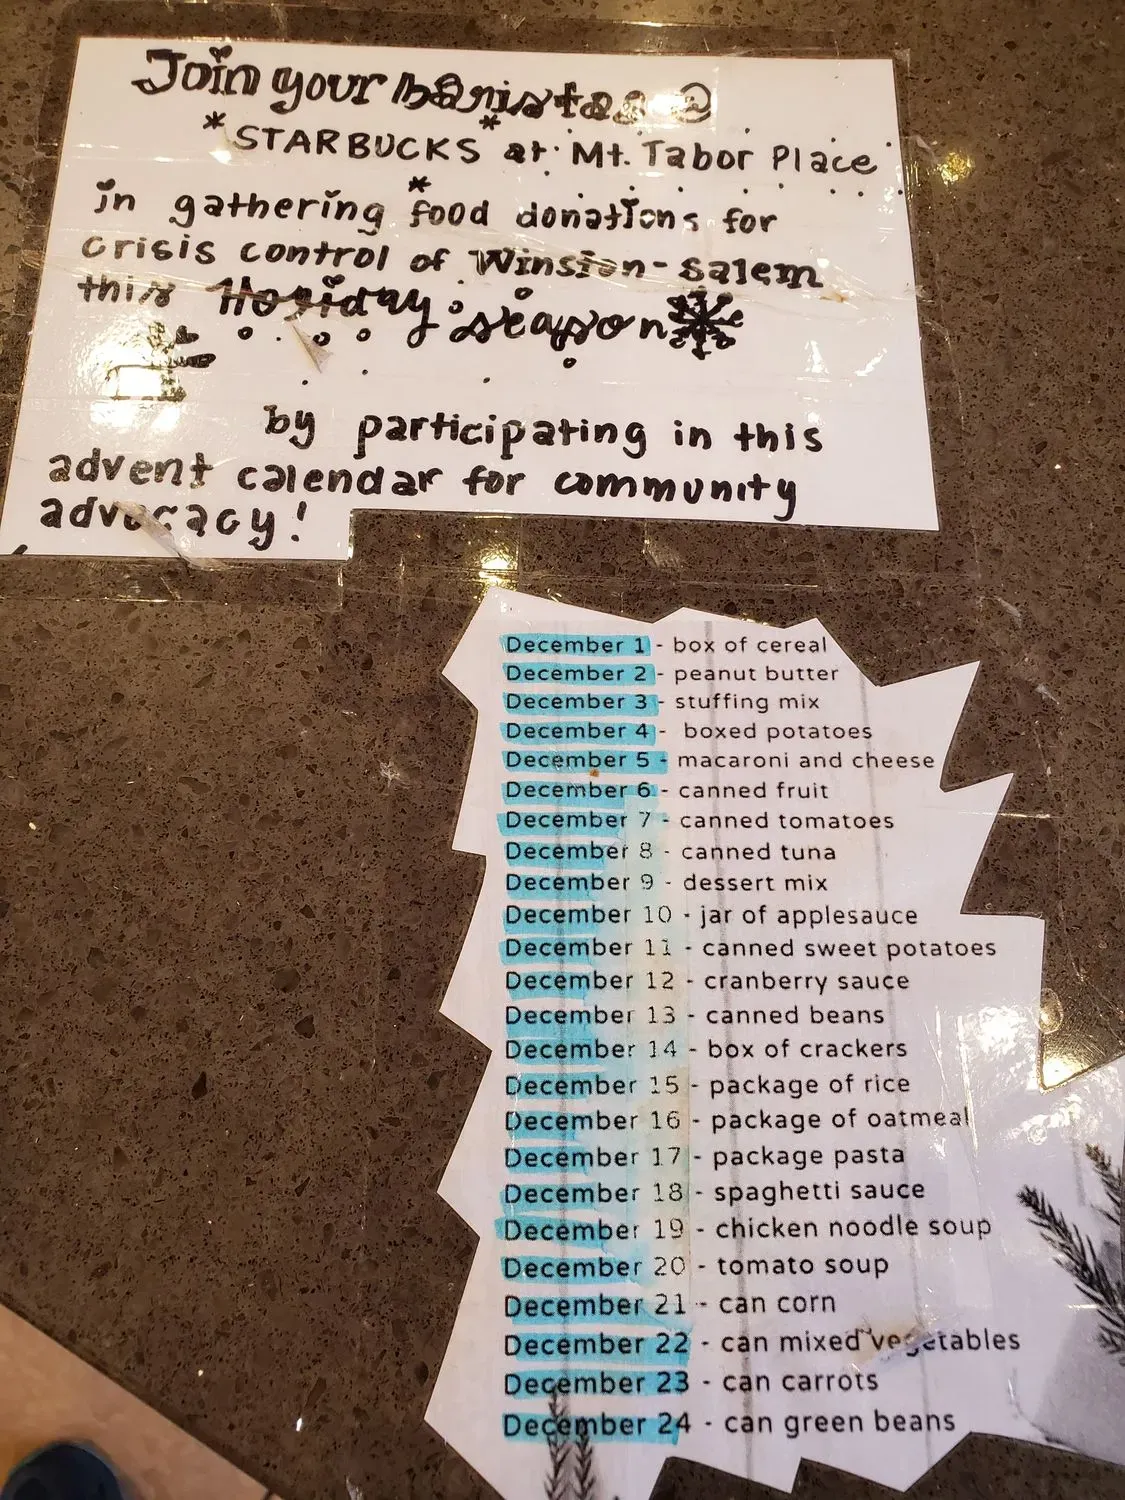 Join your baristas @
*STARBUCKS* at Mt. Tabor Place
in gathering *food donations for
crisis control of Winston-Salem
this Holiday season
by participating in this
advent calendar for community
advocacy!
December 1 - box of cereal
December 2 - peanut butter
December 3 - stuffing mix
December 4 - boxed potatoes
December 5 - macaroni and cheese
December 6 - canned fruit
December 7 - canned tomatoes
December 8 - canned tuna
December 9 - dessert mix
December 10 - jar of applesauce
December 11 - canned sweet potatoes
December 12 - cranberry sauce
December 13 - canned beans
December 14 - box of crackers
December 15 - package of rice
December 16 - package of oatmeal
December 17 - package pasta
December 18 - spaghetti sauce
December 19 - chicken noodle soup
December 20 - tomato soup
December 21 - can corn
December 22 - can mixed vegetables
December 23 - can carrots
December 24 - can green beans